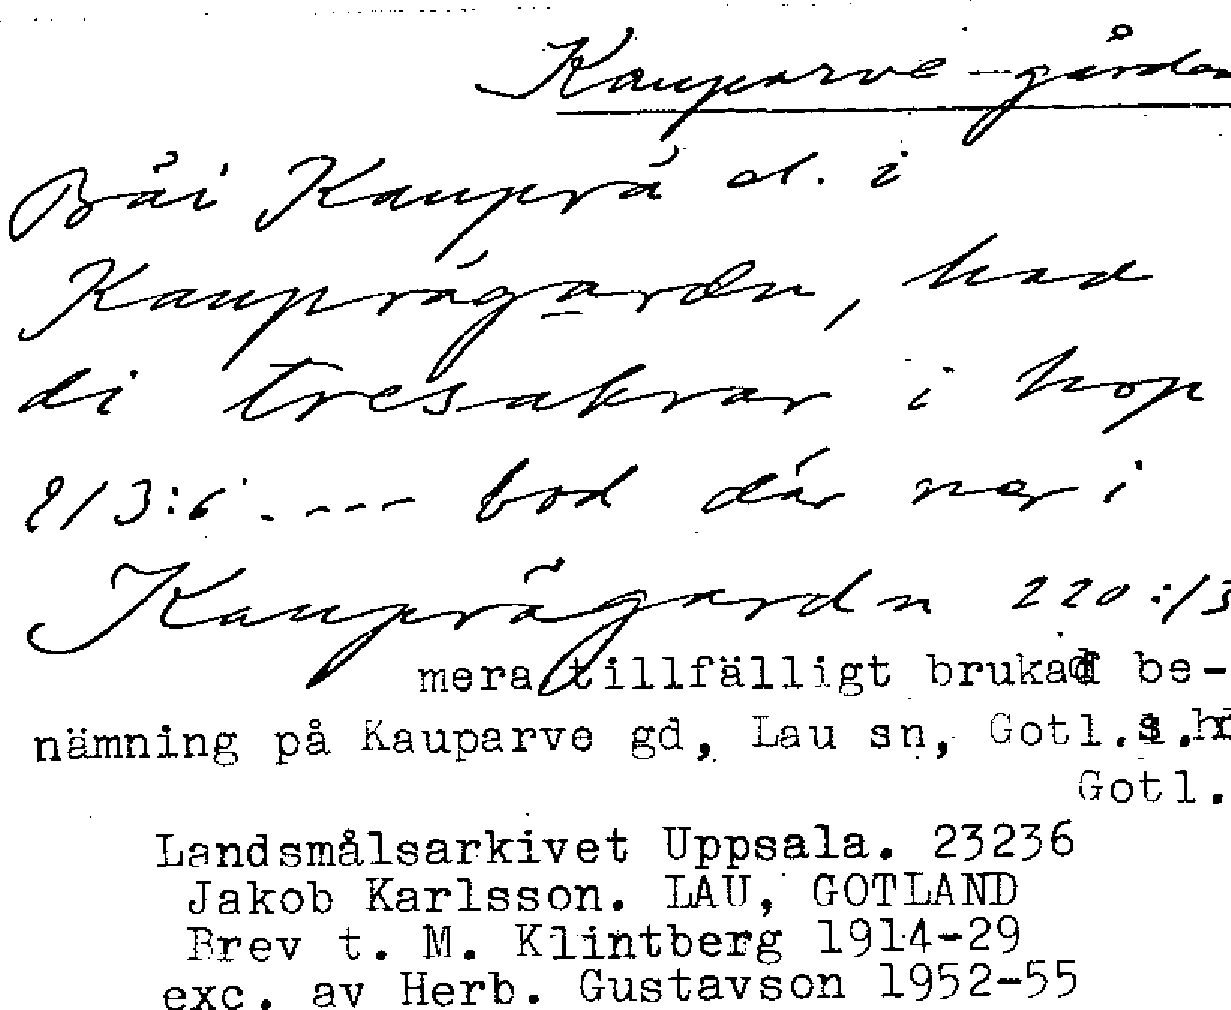 Kauparve-gården
Båi Kauprá el. i
Kauprágardn, had
di tresakrar i hop
213:6. --- bod där ner i
Kauprågardn 220:13
mera tillfälligt brukad be-
nämning på Kauparve gd, Lau sn, Gotl.s.hd
Gotl.
Landsmålsarkivet Uppsala. 23236
Jakob Karlsson. LAU, GOTLAND
Brev t. M. Klintberg 1914-29
exc. av Herb. Gustavson 1952-55